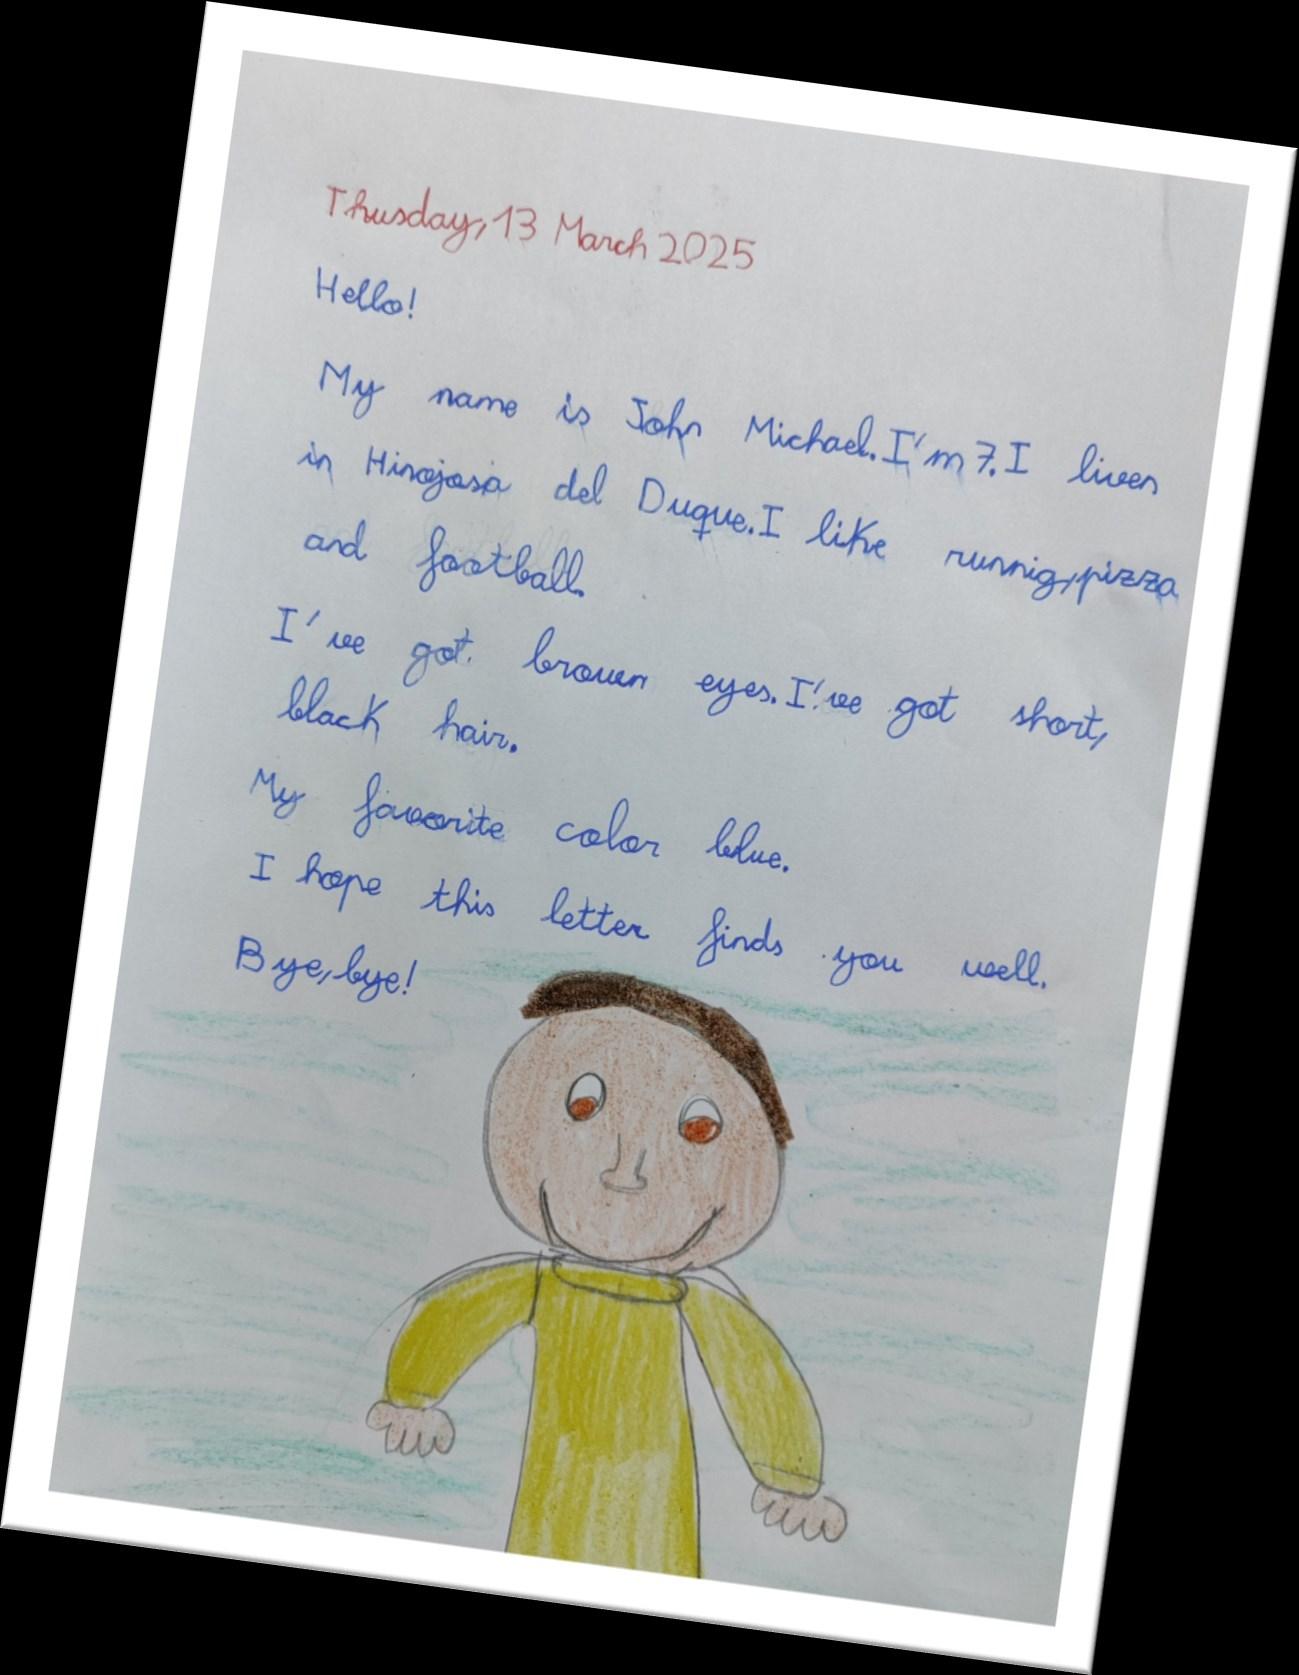 Thusday, 13 March 2025
Hello!
My name is John Michael. I'm 7. I lives
in Hinojosa del Duque. I like runnig, pizza
and football.
I've got brown eyes. I've got short,
black hair.
My favorite color blue.
I hope this letter finds you well.
Bye, bye!